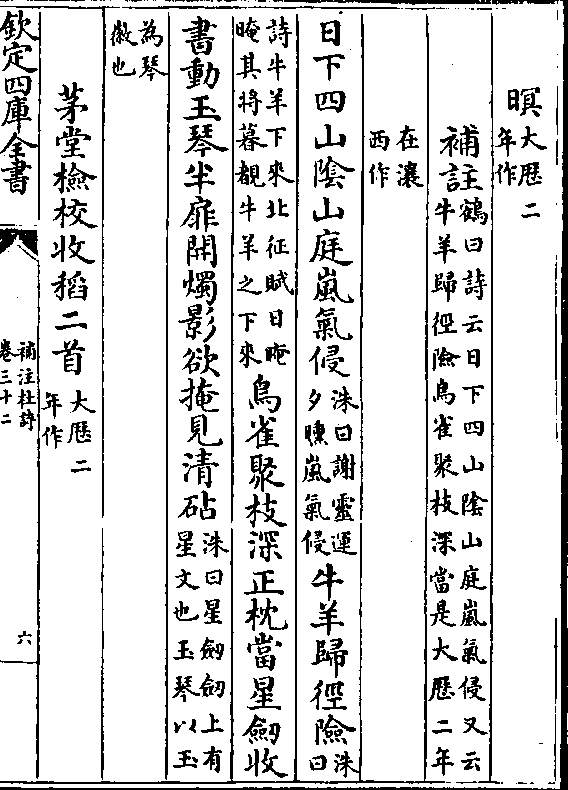 暝大厯二
年作
補註鶴曰詩云日下四山陰山庭嵐氣侵又云
牛羊歸徑險鳥雀聚枝深當是大厯二年
在瀼
西作
日下四山陰山庭嵐氣侵洙曰謝靈運
夕曛嵐氣侵牛羊歸徑險洙
曰
詩牛羊下來北征賦日晻
晻其將暮覩牛羊之下來鳥雀聚枝深正枕當星劒收
書動玉琴半扉開燭影欲掩見清砧洙曰星劒劒上有
星文也玉琴以玉
為琴
徽也
茅堂檢校收稻二首大厯二
年作
欽定四庫全書
補注杜詩
卷三十二
六